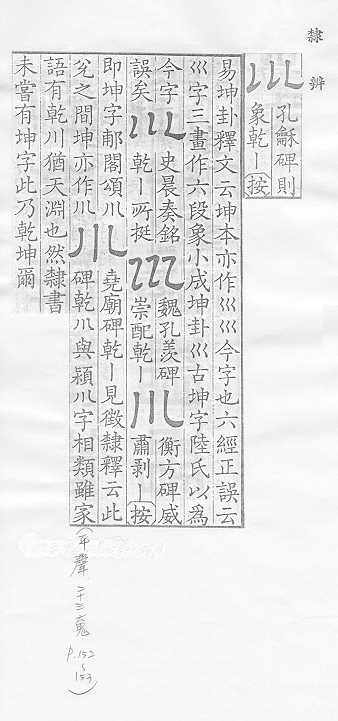 隸辨
孔龢碑則象乾丨按
易坤卦釋文云坤本亦作巛巛今字也六經正誤云
巛字三畫作六段象小成坤卦巛古坤字陸氏以為
今字誤矣
史晨奏銘乾丨所挺
魏孔羨碑崇配乾丨
衡方碑威肅剥丨按
即坤字郙閣頌川
兊之間坤亦作川
堯廟碑乾丨見徵隸釋云此
碑乾川與穎川字相類雖家
語有乾川猶天淵也然隸書
未嘗有坤字此乃乾坤爾
(平聲二十三魂
P.152
153)